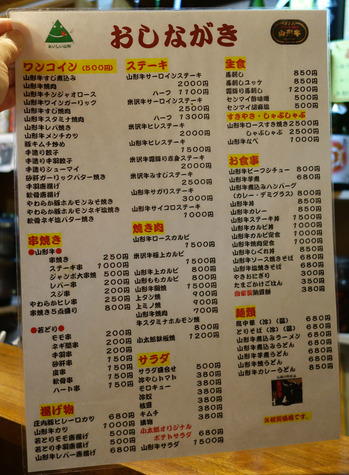 おしながき
おいしい山形
山形牛
ワンコイン(500円)
山形牛すじ煮込み
山形牛焼肉
山形牛チンジャオロース
山形牛ワインガーリック
山形牛すじ焼肉
山形牛スタミナ焼肉
山形牛レバ焼き
山形牛メンチカツ
豚キムチ炒め
手造り餃子
手造り中華餃子
手造りシューマイ
砂肝ガーリックバター焼き
手羽唐揚げ
軟骨唐揚げ
やわらか豚ホルモンみそ焼き
やわらか豚ホルモンネギ塩焼き
軟骨ネギ塩バター焼き
串焼き
●山形牛●
串焼き 250円
ステーキ串 1000円
ジャンボ大串焼 500円
レバー串 200円
スジ串 200円
やわらかヒレ串 250円
串焼き5点盛り 800円
●若どり●
モモ串 200円
ネギ間串 200円
手羽串 150円
砂肝串 150円
皮串 150円
軟骨串 150円
ハート串 150円
揚げ物
庄内豚ヒレ一口カツ 680円
山形牛カツ 1000円
若どりモモ唐揚げ 500円
若どり手羽唐揚げ 500円
山形牛レバー唐揚げ 680円
ステーキ
山形牛サーロインステーキ
2000円
ハーフ 1100円
米沢牛サーロインステーキ
2500円
ハーフ 1300円
山形牛ヒレステーキ
1500円
米沢牛ヒレステーキ
2000円
米沢牛霜降り赤身ステーキ
2000円
米沢牛みすじステーキ
2500円
山形牛サガリステーキ
3000円
山形牛サイコロステーキ
1000円
焼き肉
山形牛ロースカルビ
1500円
米沢牛極上カルビ
1500円
山形牛上カルビ 800円
山形牛もカルビ 800円
山形牛製焼 1500円
上タン焼 900円
上ミノ焼 900円
山形牛焼肉 700円
牛スタミナホルモン焼
680円
小太郎鉄板焼 1500円
サラダ
サラダ盛合せ 500円
冷やしトマト 380円
モロキュー 380円
冷奴 380円
枝豆 380円
キムチ 380円
漬物 380円
小太郎オリジナル
ポテトサラダ 680円
山形牛サラダ 1500円
生食
馬刺し 850円
馬刺しユッケ 850円
霜降り馬刺し 1200円
センマイ酢味噌 500円
センマイ胡麻塩 500円
すきやき・しゃぶしゃぶ
山形牛ロースすき焼き 2500円
しゃぶしゃぶ 2500円
山形牛なべ 1000円
お食事
山形牛ビーフシチュー 800円
山形牛芋煮 680円
山形牛煮込みハンバーグ
(カレー・デミグラス) 800円
山形牛丼 850円
山形牛カレー 850円
山形牛ステーキ丼 1500円
山形牛カルビ丼 1000円
山形牛カルビ定食 1000円
山形牛焼肉定食 1000円
山形牛しぐれ丼 850円
山形牛ソース焼きそば 680円
山形牛塩焼きそば 680円
やきおにぎり 300円
たまごかけごはん 350円
麺類
鳥中華(冷)(温) 680円
とりそば(冷)(温) 680円
山形牛煮込みラーメン 680円
山形牛煮込みうどん 680円
山形牛芋煮うどん 680円
山形牛焼うどん 680円
山形牛カレーうどん 850円
※税別価格です。